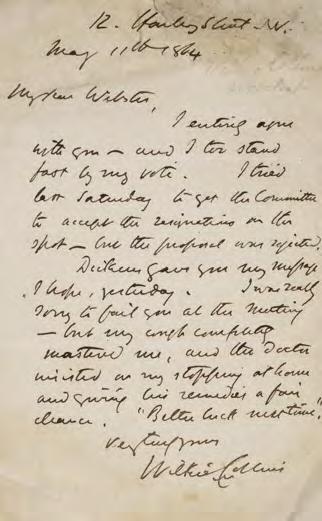 12. Harley Street. W.
May 11th 1864
My dear Webster,
I entirely agree
with you – and I too stand
fast by my vote. I tried
last Saturday to get the Committee
to accept the resignations on the
spot – but the proposal was rejected.
Dickens gave you my message
I hope, yesterday. I was really
sorry to fail you at the Meeting
– but my cough completely
mastered me, and the doctor
insisted on my stopping at home
and giving his remedies a fair
chance. "Better luck next time."
Very truly yours
Wilkie Collins